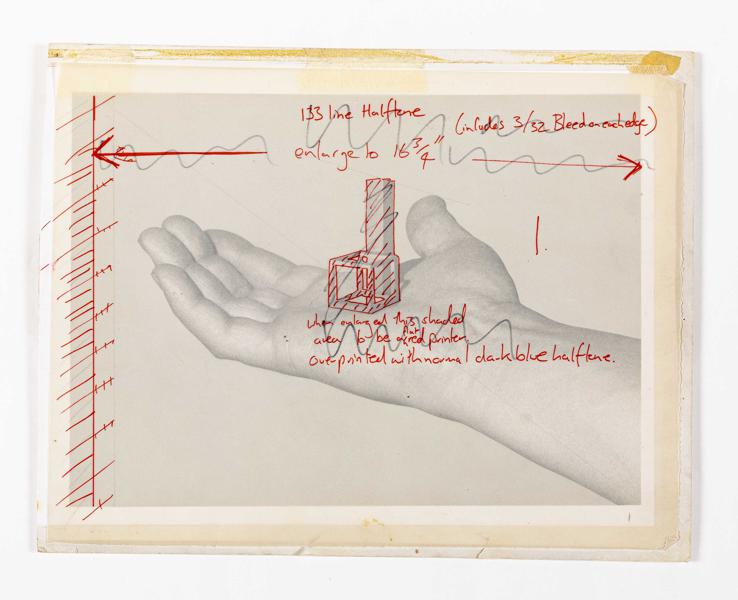 133 line Halftone
(includes 3/32 Bleed on each edge)
enlarge to 16 3/4"
1.
when enlarged this shaded
area to be flat red printer
overprinted with normal dark blue halftone.